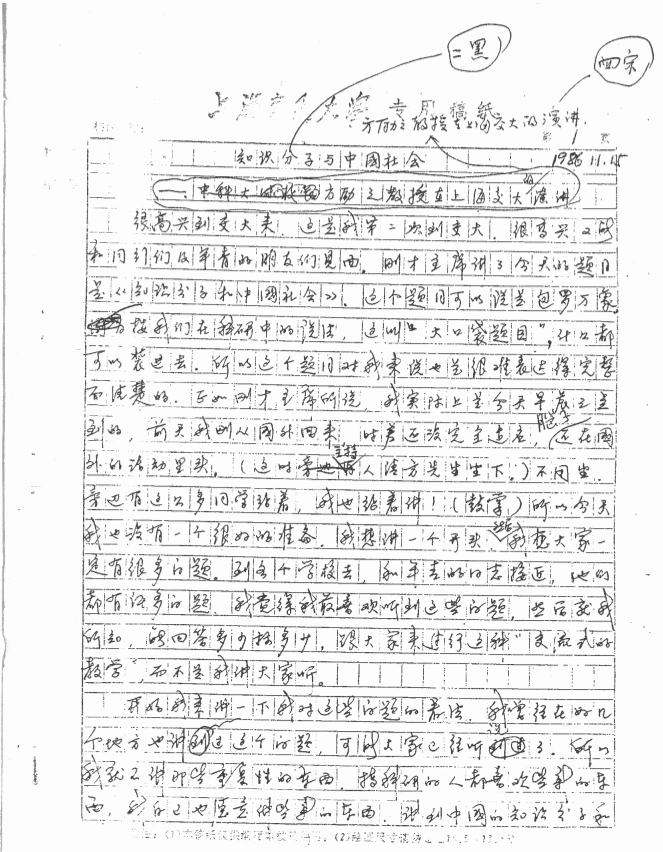 =黑
四宋
上海交通大学 专用稿纸
方励之教授在上海交大的演讲.
知识分子与中国社会
1986.11.15
一中科大方励之教授在上海交大演讲
很高兴到交大来. 这是我第二次到交大. 很高兴又能
和同行们及年青的朋友们见面. 刚才主席讲了今天的题目
是《知识分子和中国社会》. 这个题目可以说是包罗万象,
按我们在科研中的说法, 这叫"大口袋题目", 什么都
可以装进去. 所以这个题目对我来说也是很难表达得完整
而清楚的. 正如刚才主席所说, 我实际上是今天早晨才
到的, 前天我刚从国外回来. 时差还没完全适应, 脑子还在国
外的活动里头. (这时主持人请方先生坐下.) 不用坐.
旁边有这么多同学站着, 我也站着讲! (鼓掌) 所以今天
我也没有一个很好的准备. 我想讲一个开头. 我想大家一
定有很多问题. 到各个学校去, 和年青的同志接近, 他们
都有许多问题. 我觉得我最喜欢听到这些问题, 然后就我
所知, 能回答多少算多少, 跟大家来进行这种"交流式的
教学", 而不是我讲大家听。
开始我来讲一下我对这些问题的看法. 我曾经在好几
个地方也讲到过这个问题, 可能大家已经听说了. 所以
我就不讲那些重复性的东西. 搞科研的人都喜欢些新的东
西, 我自己也愿意做些新的东西. 谈到中国的知识分子和